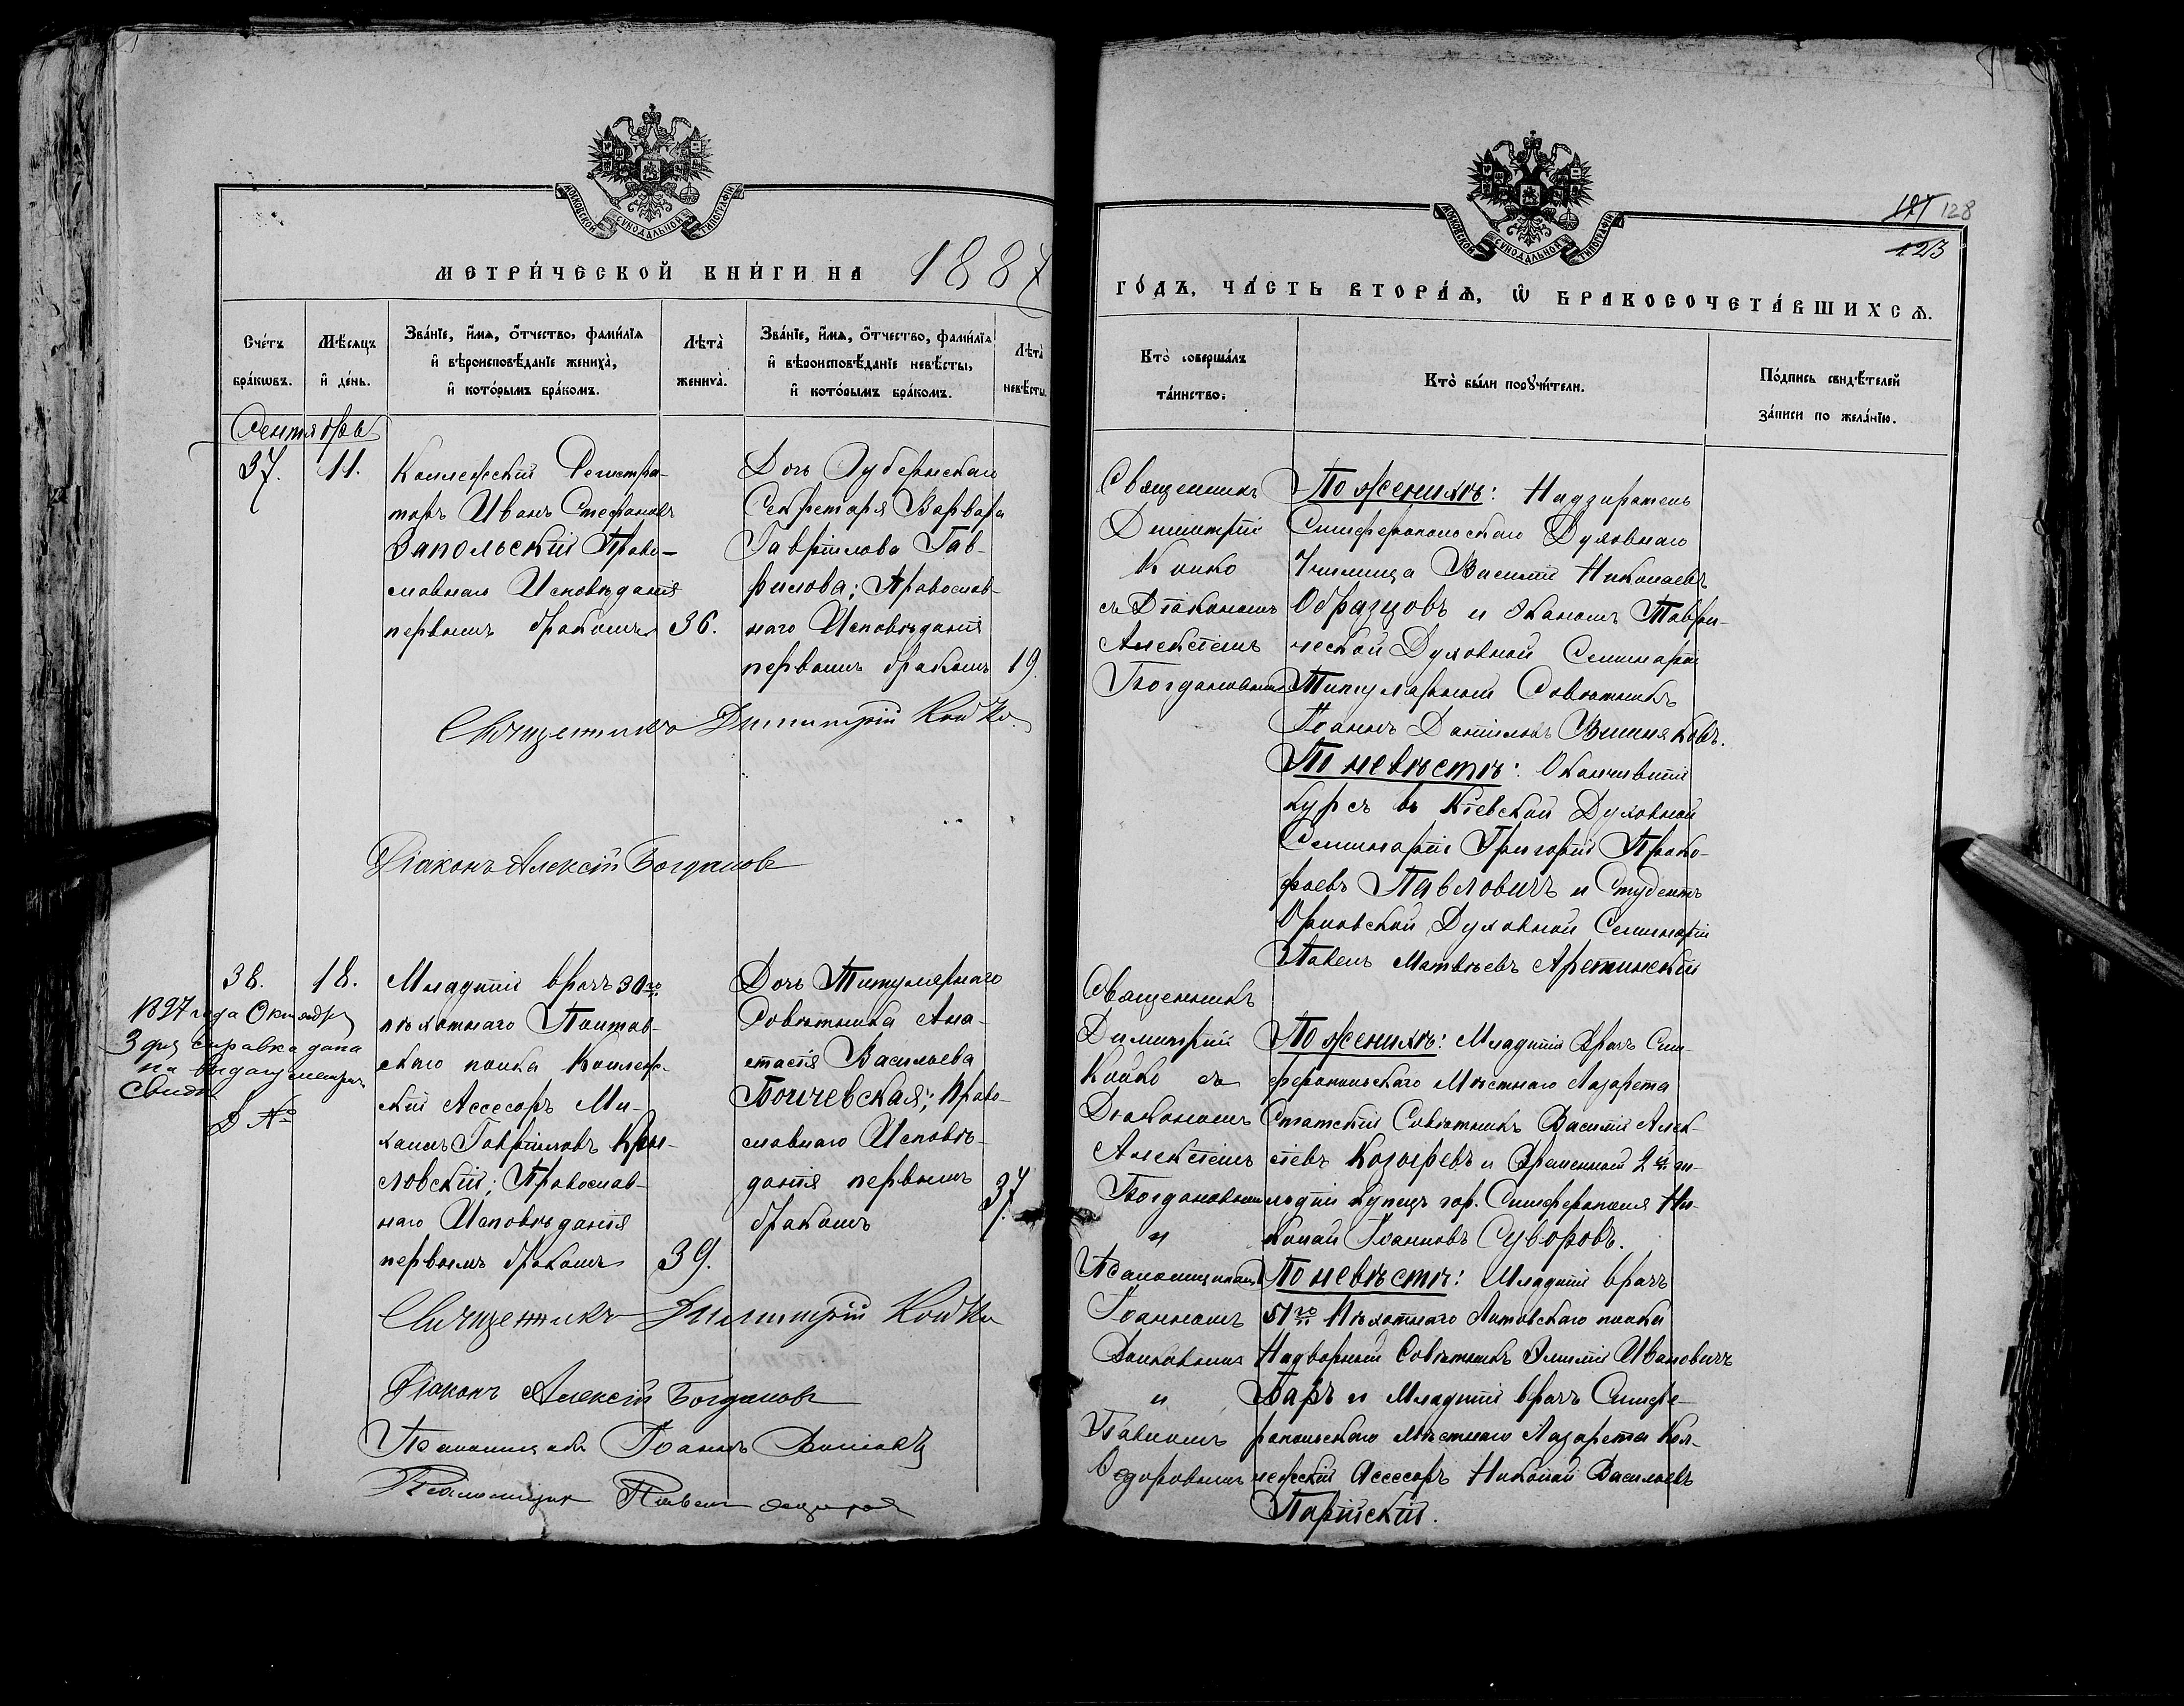 МОСКОВСКОЙ СУНОДАЛЬНОЙ ТИПОГРАФІИ
МЕТРИ́ЧЕСКОЙ КНИ́ГИ НА 1887
Сче́тъ бра́кѡвъ.
Мѣ́сяцъ и҆ де́нь.
Зва́нїе, и҆́мѧ, ѻ҆́тчество, фами́лїѧ
и҆ вѣроисповѣ́данїе жениха̀,
и҆ кото́рымъ бра́комъ.
Лѣта̀ жениха̀.
Зва́нїе, и҆́мѧ, ѻ҆́тчество, фами́лїѧ
и҆ вѣроисповѣ́данїе невѣ́сты,
и҆ кото́рымъ бра́комъ.
Лѣта̀ невѣ́сты.
Сентябрь
37.
11.
Коллежскій Регистра-
торъ Иванъ Стефановъ
Запольскій Право-
славнаго Исповѣданія
первымъ бракомъ
36.
Дочь Губернскаго
Секретаря Варвара
Гавріилова Гав-
рилова; Православ-
наго Исповѣданія
первымъ бракомъ
19.
Священникъ Димитрій Койко
Діаконъ Алексій Богдановъ
38.
18.
1897 года Октября
3 дня справка дана
на выдачу метрич.
свид.
Д №
Младшій врачъ 30го
пѣхотнаго Полтав-
скаго полка Коллеж-
скій Ассесоръ Ми-
хаилъ Гавріиловъ Кры-
ловскій; Православ-
наго Исповѣданія
первымъ бракомъ
39.
Дочь Титулярнаго
Совѣтника Ана-
стасія Васильева
Боичевская; Право-
славнаго Исповѣ-
данія первымъ
бракомъ
37.
Священникъ Димитрій Койко
Діаконъ Алексій Богдановъ
Псаломщикъ Іоаннъ
Псаломщикъ Павелъ
МОСКОВСКОЙ СУНОДАЛЬНОЙ ТИПОГРАФІИ
128
123
ГО́ДЪ, ЧА́СТЬ ВТОРА́Ѧ, Ѡ҆ БРАКОСОЧЕТА́ВШИХСѦ.
Кто̀ соверша́лъ
та́инство.
Кто̀ бы́ли порꙋчи́тели.
По́дпись свидѣ́телей
за́писи по жела́нїю.
Священникъ
Димитрій
Койко
съ Діакономъ
Алексіемъ
Богдановымъ
По женихѣ: Надзиратель
Симферопольскаго Духовнаго
Училища Василій Николаевъ
Образцовъ и Экономъ Таври-
ческой Духовной Семинаріи
Титулярный Совѣтникъ
Іоаннъ Даніиловъ Вишняковъ.
По невѣстѣ: Окончившій
курсъ въ Кіевской Духовной
Семинаріи Григорій Проко-
фьевъ Павловичъ и Студентъ
Орловской Духовной Семинаріи
Павелъ Матвѣевъ Аретинскій
Священникъ
Димитрій
Койко съ
Діакономъ
Алексіемъ
Богдановымъ
и
Псаломщиками
Іоанномъ
и
Павломъ
Ѳедоровымъ
По женихѣ: Младшій Врачъ Сим-
феропольскаго Мѣстнаго Лазарета
Статскій Совѣтникъ Василій Алек-
сѣевъ Козыревъ и Временный 2й ги-
льдіи купецъ гор. Симферополя Ни-
колай Іоанновъ Суворовъ.
По невѣстѣ: Младшій врачъ
51го Пѣхотнаго Литовскаго полка
Надворный Совѣтникъ Эмилій Ивановичъ
Баръ и Младшій врачъ Симфе-
ропольскаго Мѣстнаго Лазарета Кол-
лежскій Ассесоръ Николай Васильевъ
Парійскій.